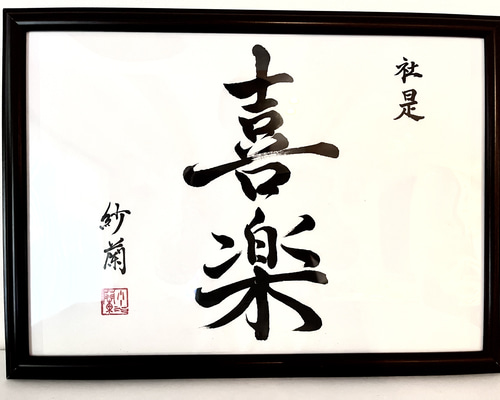 社是
喜楽
紗蘭